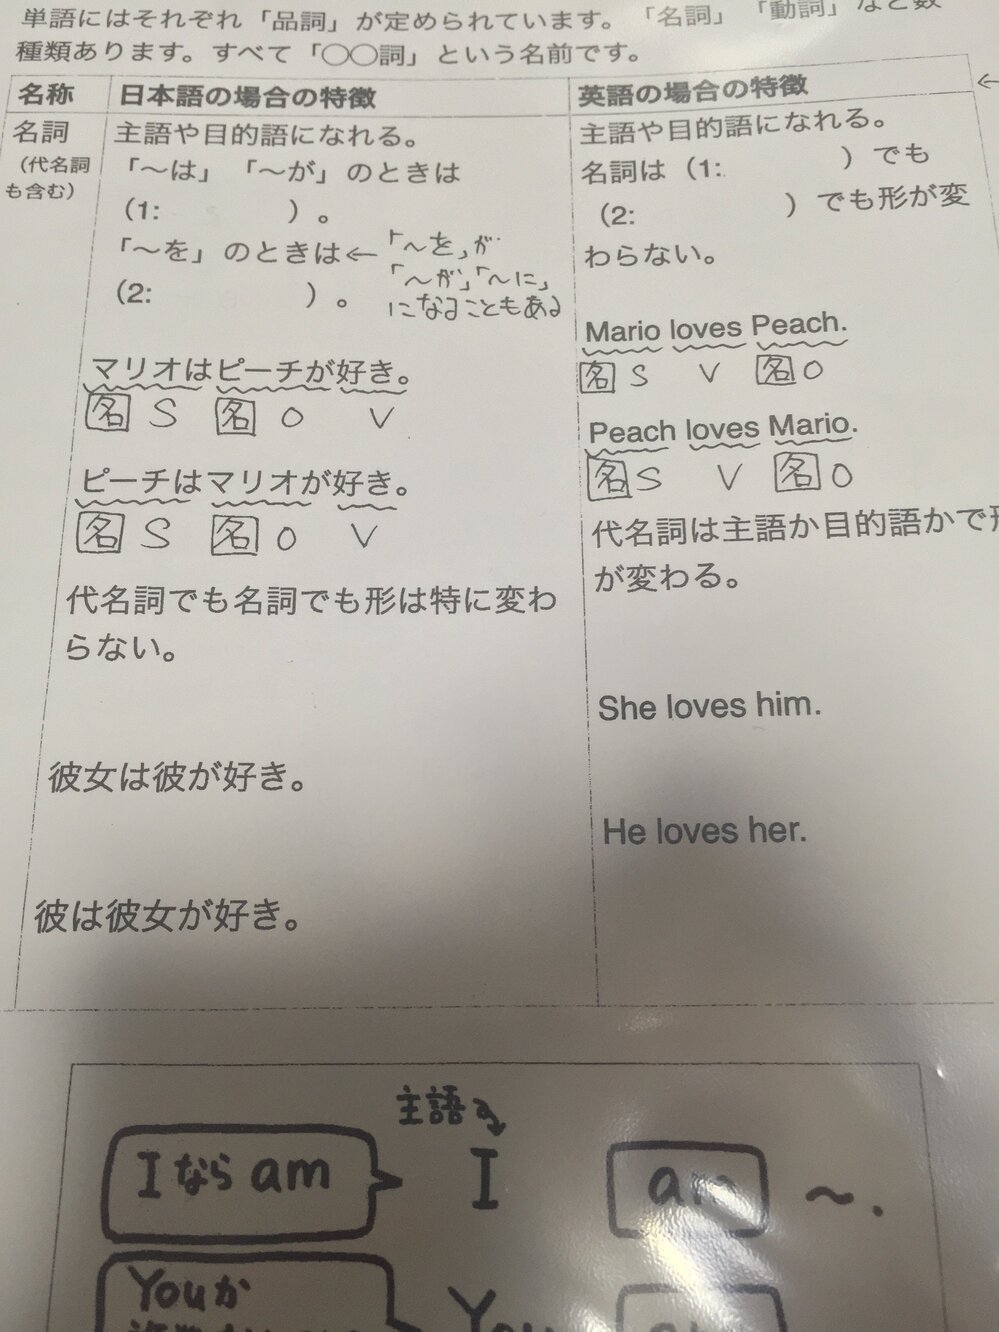 単語にはそれぞれ「品詞」が定められています。「名詞」「動詞」など数
種類あります。すべて「〇〇詞」という名前です。
名称
日本語の場合の特徴
英語の場合の特徴
←
名詞
（代名詞
も含む）
主語や目的語になれる。
「〜は」「〜が」のときは
（1: ）。
「〜を」のときは← 「〜を」が
「〜が」「〜に」
になることもある
（2: ）。
マリオはピーチが好き。
名 S 名 O V
ピーチはマリオが好き。
名 S 名 O V
代名詞でも名詞でも形は特に変わ
らない。
彼女は彼が好き。
彼は彼女が好き。
主語や目的語になれる。
名詞は（1: ）でも
（2: ）でも形が変
わらない。
Mario loves Peach.
名 S V 名 O
Peach loves Mario.
名 S V 名 O
代名詞は主語か目的語かで形
が変わる。
She loves him.
He loves her.
主語
Iなら am
I am 〜.
Youか
You